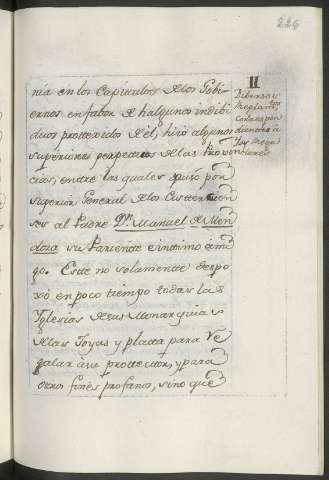 226
nia en los Capitulos de los Gobi-
ernos en fabor de halgunos indibi
duos prottexidos de el, hizo algunos
superiores perpettuos de las Provin
cias, entre las quales puso por
superior General de los Cistercien
ses al Padre Dn. Manuel de Men
doza su Pariente e inttimo ami
go. Este no solamente despo
xó en poco tiempo todas las
Yglesias de esus Monarquias
de las Joyas y platta para re
galar a su prottecttor, y para
otros fines profanos, sino que
11
Diberso
Reglam.tos